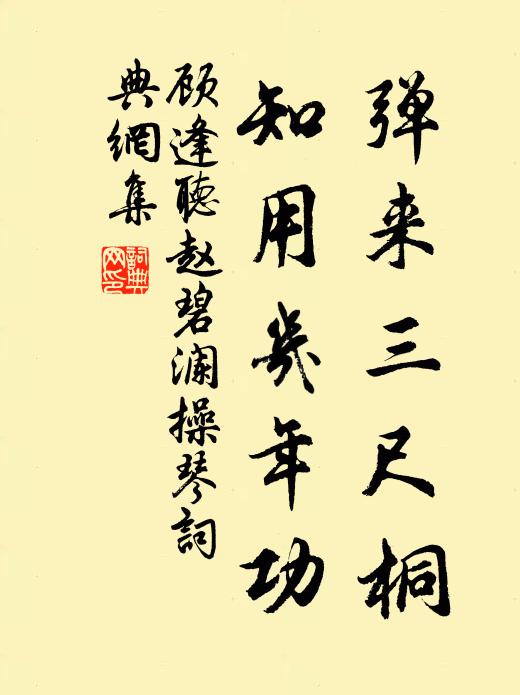 弹来三尺桐
知用几年功
顾逢聽赵碧澜操琴詞
典網集
詞典
网印